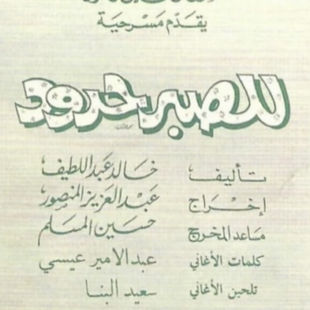 يقدم مسرحية
للصبر حدود
تأليف خالد عبد اللطيف
إخراج عبد العزيز المنصور
مساعد المخرج حسين المسلم
كلمات الأغاني عبد الأمير عيسى
تلحين الأغاني سعيد البنا